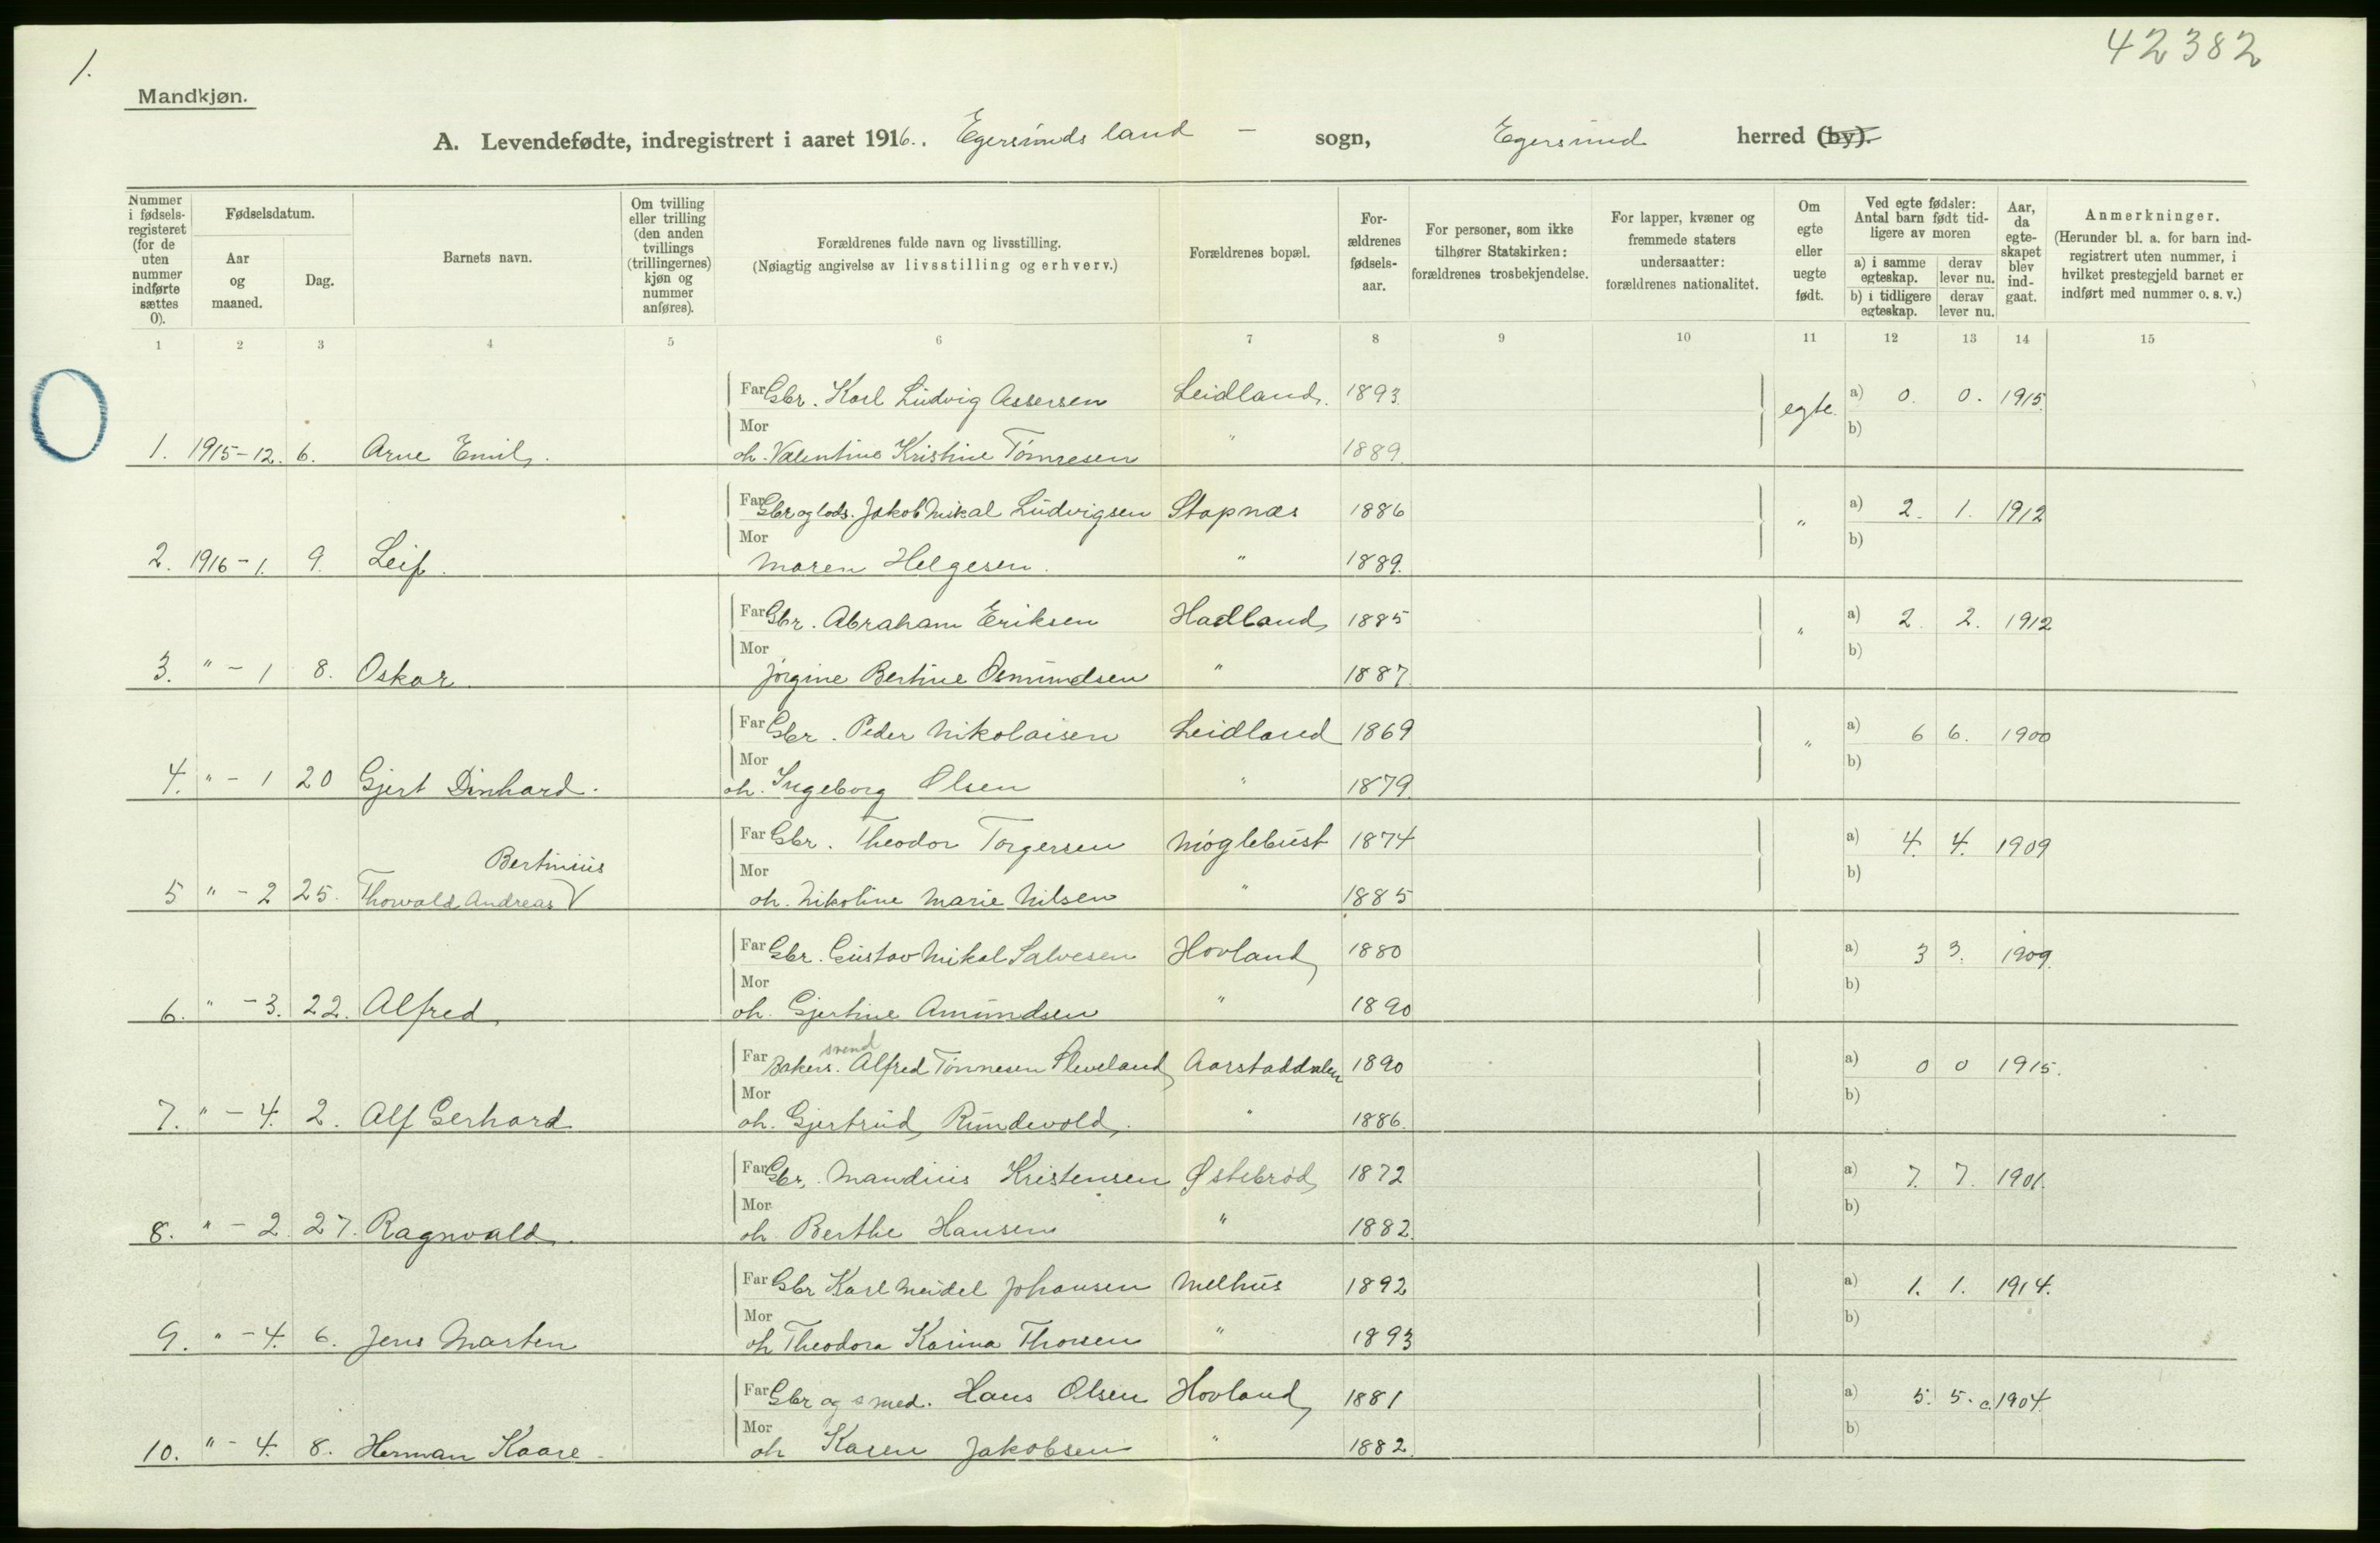 1.
42382
Mandkjøn.
A. Levendefødte, indregistrert i aaret 1916. Egersunds land - sogn, Egersund herred (by).
Nummer i fødsels-registeret (for de uten nummer indførte sættes 0).
Fødselsdatum.
Aar og maaned.
Dag.
Barnets navn.
Om tvilling eller trilling (den anden tvillings (trillingernes) kjøn og nummer anføres).
Forældrenes fulde navn og livsstilling.
(Nøiagtig angivelse av livsstilling og erhverv.)
Forældrenes bopæl.
For-ældrenes fødsels-aar.
For personer, som ikke tilhører Statskirken: forældrenes trosbekjendelse.
For lapper, kvæner og fremmede staters undersaatter: forældrenes nationalitet.
Om egte eller uegte født.
Ved egte fødsler: Antal barn født tid-ligere av moren
a) i samme egteskap. derav lever nu.
b) i tidligere egteskap. derav lever nu.
Aar, da egte-skapet blev ind-gaat.
Anmerkninger.
(Herunder bl. a. for barn ind-registrert uten nummer, i hvilket prestegjeld barnet er indført med nummer o. s. v.)
1 2 3 4 5 6 7 8 9 10 11 12 13 14 15
Far Gbr. Karl Ludvig Assersen Leidland. 1893. egte. a) 0. 0. 1915.
Mor b)
1. 1915-12. 6. Arne Emil. oh. Valentine Kristine Tønnesen " 1889.
Far Gbr og lods. Jakob Mikal Ludvigsen Stapnæs 1886 " a) 2. 1. 1912
Mor b)
2. 1916-1. 9. Leif. Maren Helgesen. " 1889.
Far Gbr. Abraham Eriksen Hadland 1885 " a) 2. 2. 1912
Mor b)
3. " - 1 8. Oskar. Jørgine Bertine Osmundsen " 1887.
Far Gbr. Peder Nikolaisen Leidland 1869 " a) 6 6. 1900
Mor b)
4. " - 1 20 Gjert Dinhard. oh. Ingeborg Olsen " 1879.
Far Gbr. Theodor Torgersen Møglebust 1874 a) 4. 4. 1909
Bertinius
Mor b)
5 " - 2 25. Thorvald Andreas V oh. Nikoline Marie Nilsen " 1885
Far Gbr. Gustav Mikal Salvesen Hovland 1880 a) 3 3. 1909.
Mor b)
6. " - 3. 22. Alfred oh. Gjertine Amundsen " 1890
svend
Far Bakers. Alfred Tønnesen Sleveland Aarstaddalen 1890 a) 0 0 1915.
Mor b)
7. " - 4. 2. Alf Gerhard oh. Gjertrud Rundevold. " 1886.
Far Gbr. Mandius Kristensen Østebrød 1872 a) 7. 7. 1901.
Mor b)
8. " - 2. 27. Ragnvald. oh Berthe Hansen " 1882.
Far Gbr Karl Meidel Johansen Melhus 1892 a) 1. 1. 1914.
Mor b)
9. " - 4. 6. Jens Marten oh Theodora Karina Thorsen " 1893
Far Gbr og smed. Hans Olsen Hovland 1881 a) 5. 5. c. 1904.
Mor b)
10. " - 4. 8. Herman Kaare oh Karen Jakobsen " 1882.